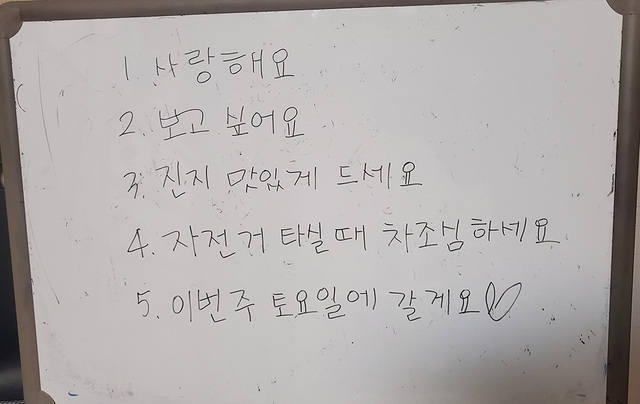 1. 사랑해요
2. 보고 싶어요
3. 진지 맛있게 드세요
4. 자전거 타실때 차조심하세요
5. 이번주 토요일에 갈게요♡